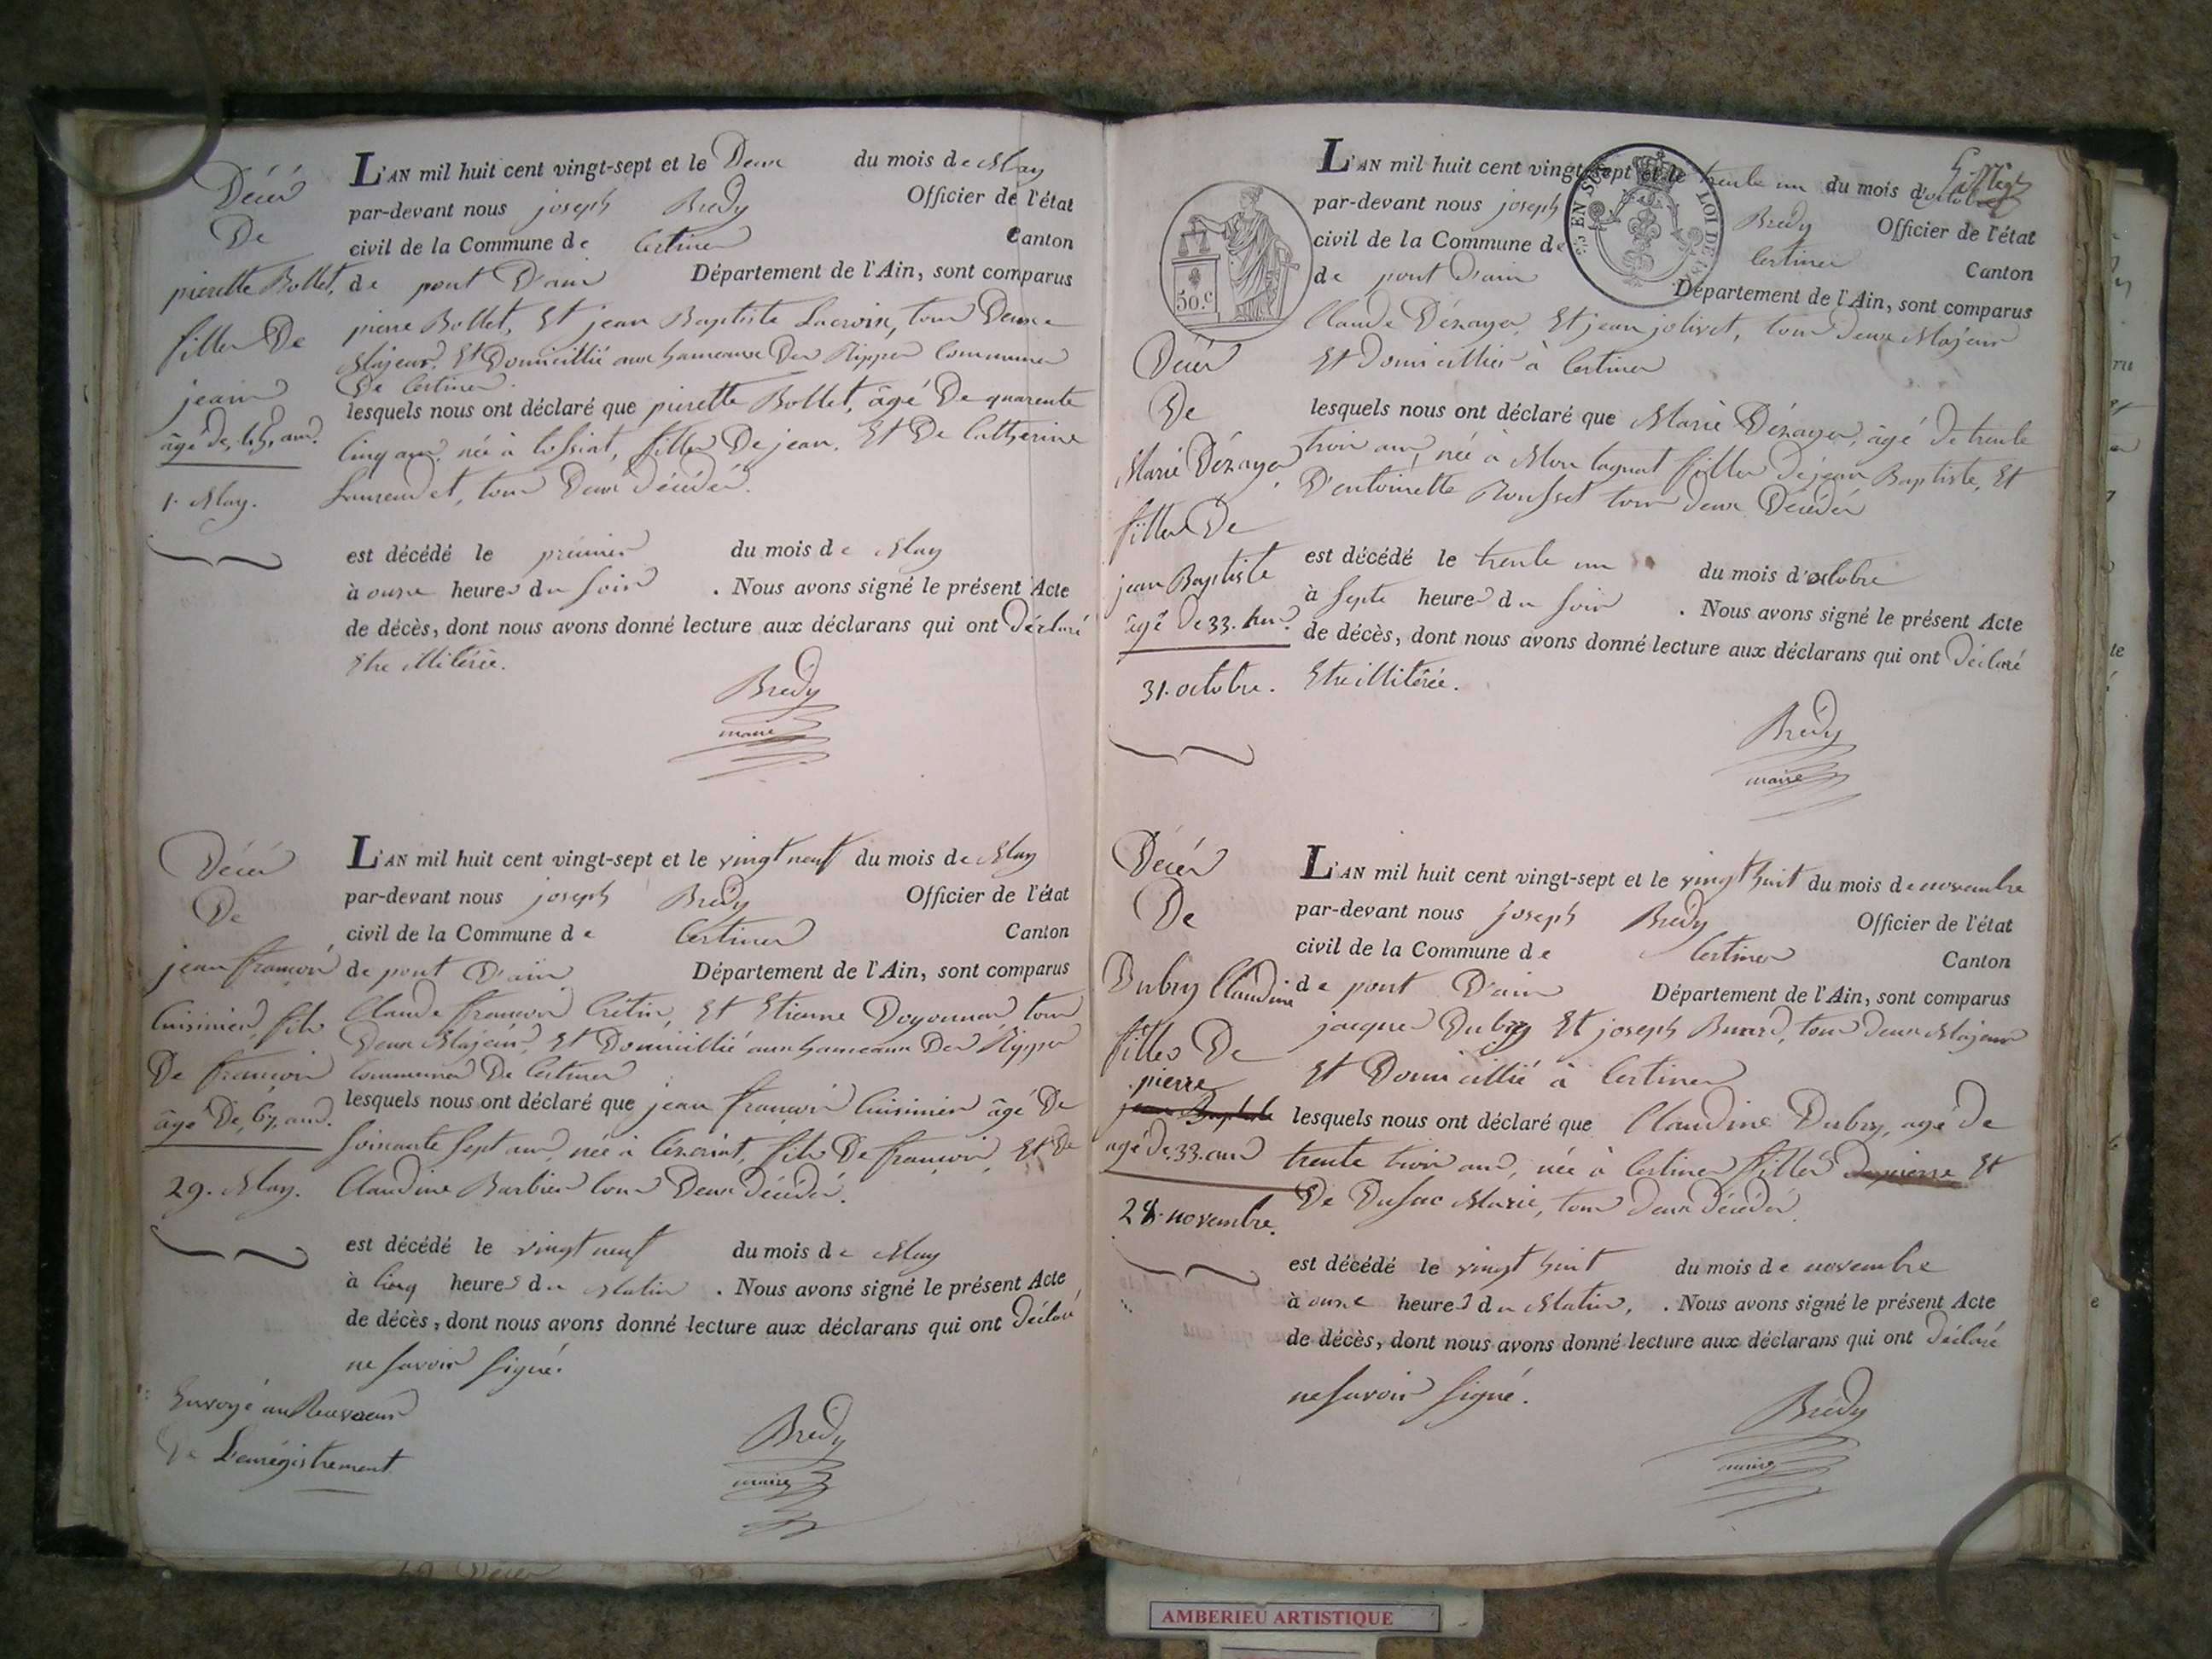 Décés
De
pierette Bollet,
filles De
jean
âgé de, 45, ans.
1. May.
L'AN mil huit cent vingt-sept et le Deux du mois de May
par-devant nous joseph Bredy Officier de l'état
civil de la Commune de Certines Canton
de pont D'ain Département de l'Ain, sont comparus
pierre Bollet, Et jean Baptiste Lacroix, tous Deux
Majeurs, Et Domicillié aux hameaux Des Rippes Communes
De Certines
lesquels nous ont déclaré que pierette Bollet, âgé De quarente
Cinq ans, née à tossiat, filles De jean, Et De Catherine
tous Deux décédés.
est décédé le prémier du mois de May
à onze heures du soir . Nous avons signé le présent Acte
de décès, dont nous avons donné lecture aux déclarans qui ont Déclaré
Etre illitérée.
Bredy
maire
Décés
De
jean françois
Cuisinier, fils
De françois
âgé De, 67, ans.
29. May.
L'AN mil huit cent vingt-sept et le vingt neuf du mois de May
par-devant nous joseph Bredy Officier de l'état
civil de la Commune de Certines Canton
de pont D'ain Département de l'Ain, sont comparus
Claude françois Crétin, Et Etienne Doyonnas, tous
Deux Majeurs, Et Domicillié aux hameaux Des Rippes
Communes De Certines
lesquels nous ont déclaré que jean françois Cuisinier âgé De
soixante sept ans, née à Cézeriat, fils De françois, Et De
Claudine Barbier tous Deux décédés.
est décédé le vingt neuf du mois de May
à Cinq heures du Matin . Nous avons signé le présent Acte
de décès, dont nous avons donné lecture aux déclarans qui ont Déclaré
ne savoir signé.
Envoyé au Receveur
De L'enrégistrement
Bredy
maire
L'AN mil huit cent vingt-sept et le trente un du mois d'octobre
par-devant nous joseph Bredy Officier de l'état
civil de la Commune de Certines Canton
de pont D'ain Département de l'Ain, sont comparus
50.c
EN SUS LOI DE
Claude Dézayes, Et jean jolivet, tous deux Majeurs
Et Domicilliés à Certines
Décés
De
Marie Dézayes
filles De
jean Baptiste
âgé De 33. Ans.
31. octobre.
lesquels nous ont déclaré que Marie Dézayes, âgé De trente
trois ans, née à Montagnat filles De jean Baptiste, Et
D'entoinette Rousset tous deux Décédés
est décédé le trente un du mois d'octobre
à septe heures du soir . Nous avons signé le présent Acte
de décès, dont nous avons donné lecture aux déclarans qui ont Déclaré
Etre illitérée.
Bredy
maire
Décés
De
Dubry Claudine
filles De
pierre
jean Baptiste
agé de 33. ans
28. novembre.
L'AN mil huit cent vingt-sept et le vingt huit du mois de novembre
par-devant nous joseph Bredy Officier de l'état
civil de la Commune de Certines Canton
de pont D'ain Département de l'Ain, sont comparus
jacques Dubry Et joseph Buvard, tous deux Majeurs
Et Domicillié à Certines
lesquels nous ont déclaré que Claudine Dubry, agé de
trente trois ans, née à Certines filles De pierre Et
De Dufac Marie, tous deux décédés.
est décédé le vingt huit du mois de novembre
à onze heures du Matin, . Nous avons signé le présent Acte
de décès, dont nous avons donné lecture aux déclarans qui ont Déclaré
ne savoir signé.
Bredy
maire
AMBERIEU ARTISTIQUE